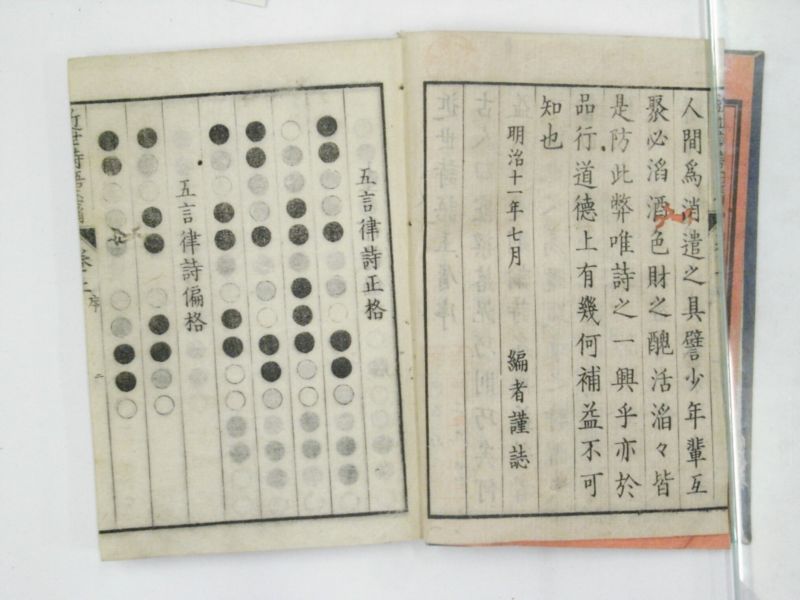 人間爲消遣之具譬少年輩互
聚必滔酒色財之醜活滔々皆
是防此弊唯詩之一興乎亦於
品行道德上有幾何補益不可
知也
明治十一年七月
編者謹誌
五言律詩正格
五言律詩偏格
卷二 序
二